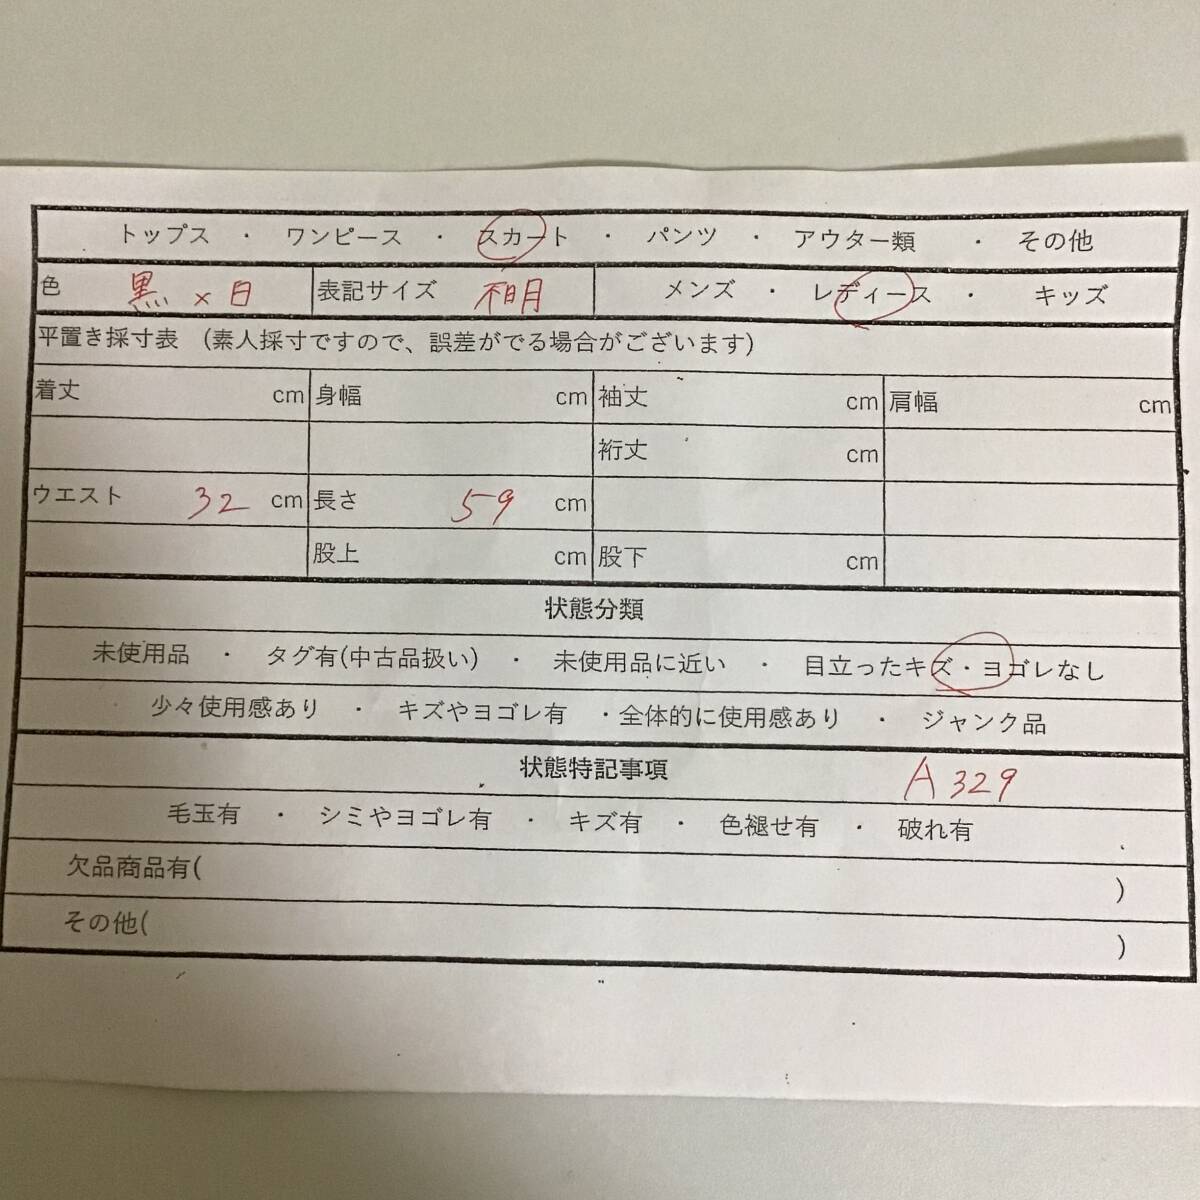 トップス ・ ワンピース ・ スカート ・ パンツ ・ アウター類 ・ その他
色 黒×白 表記サイズ 不明 メンズ ・ レディース ・ キッズ
平置き採寸表 (素人採寸ですので、誤差がでる場合がございます)
着丈 cm 身幅 cm 袖丈 cm 肩幅 cm
裄丈 cm
ウエスト 32 cm 長さ 59 cm
股上 cm 股下 cm
状態分類
未使用品 ・ タグ有(中古品扱い) ・ 未使用品に近い ・ 目立ったキズ・ヨゴレなし
少々使用感あり ・ キズやヨゴレ有 ・全体的に使用感あり ・ ジャンク品
状態特記事項 A329
毛玉有 ・ シミやヨゴレ有 ・ キズ有 ・ 色褪せ有 ・ 破れ有
欠品商品有( )
その他( )